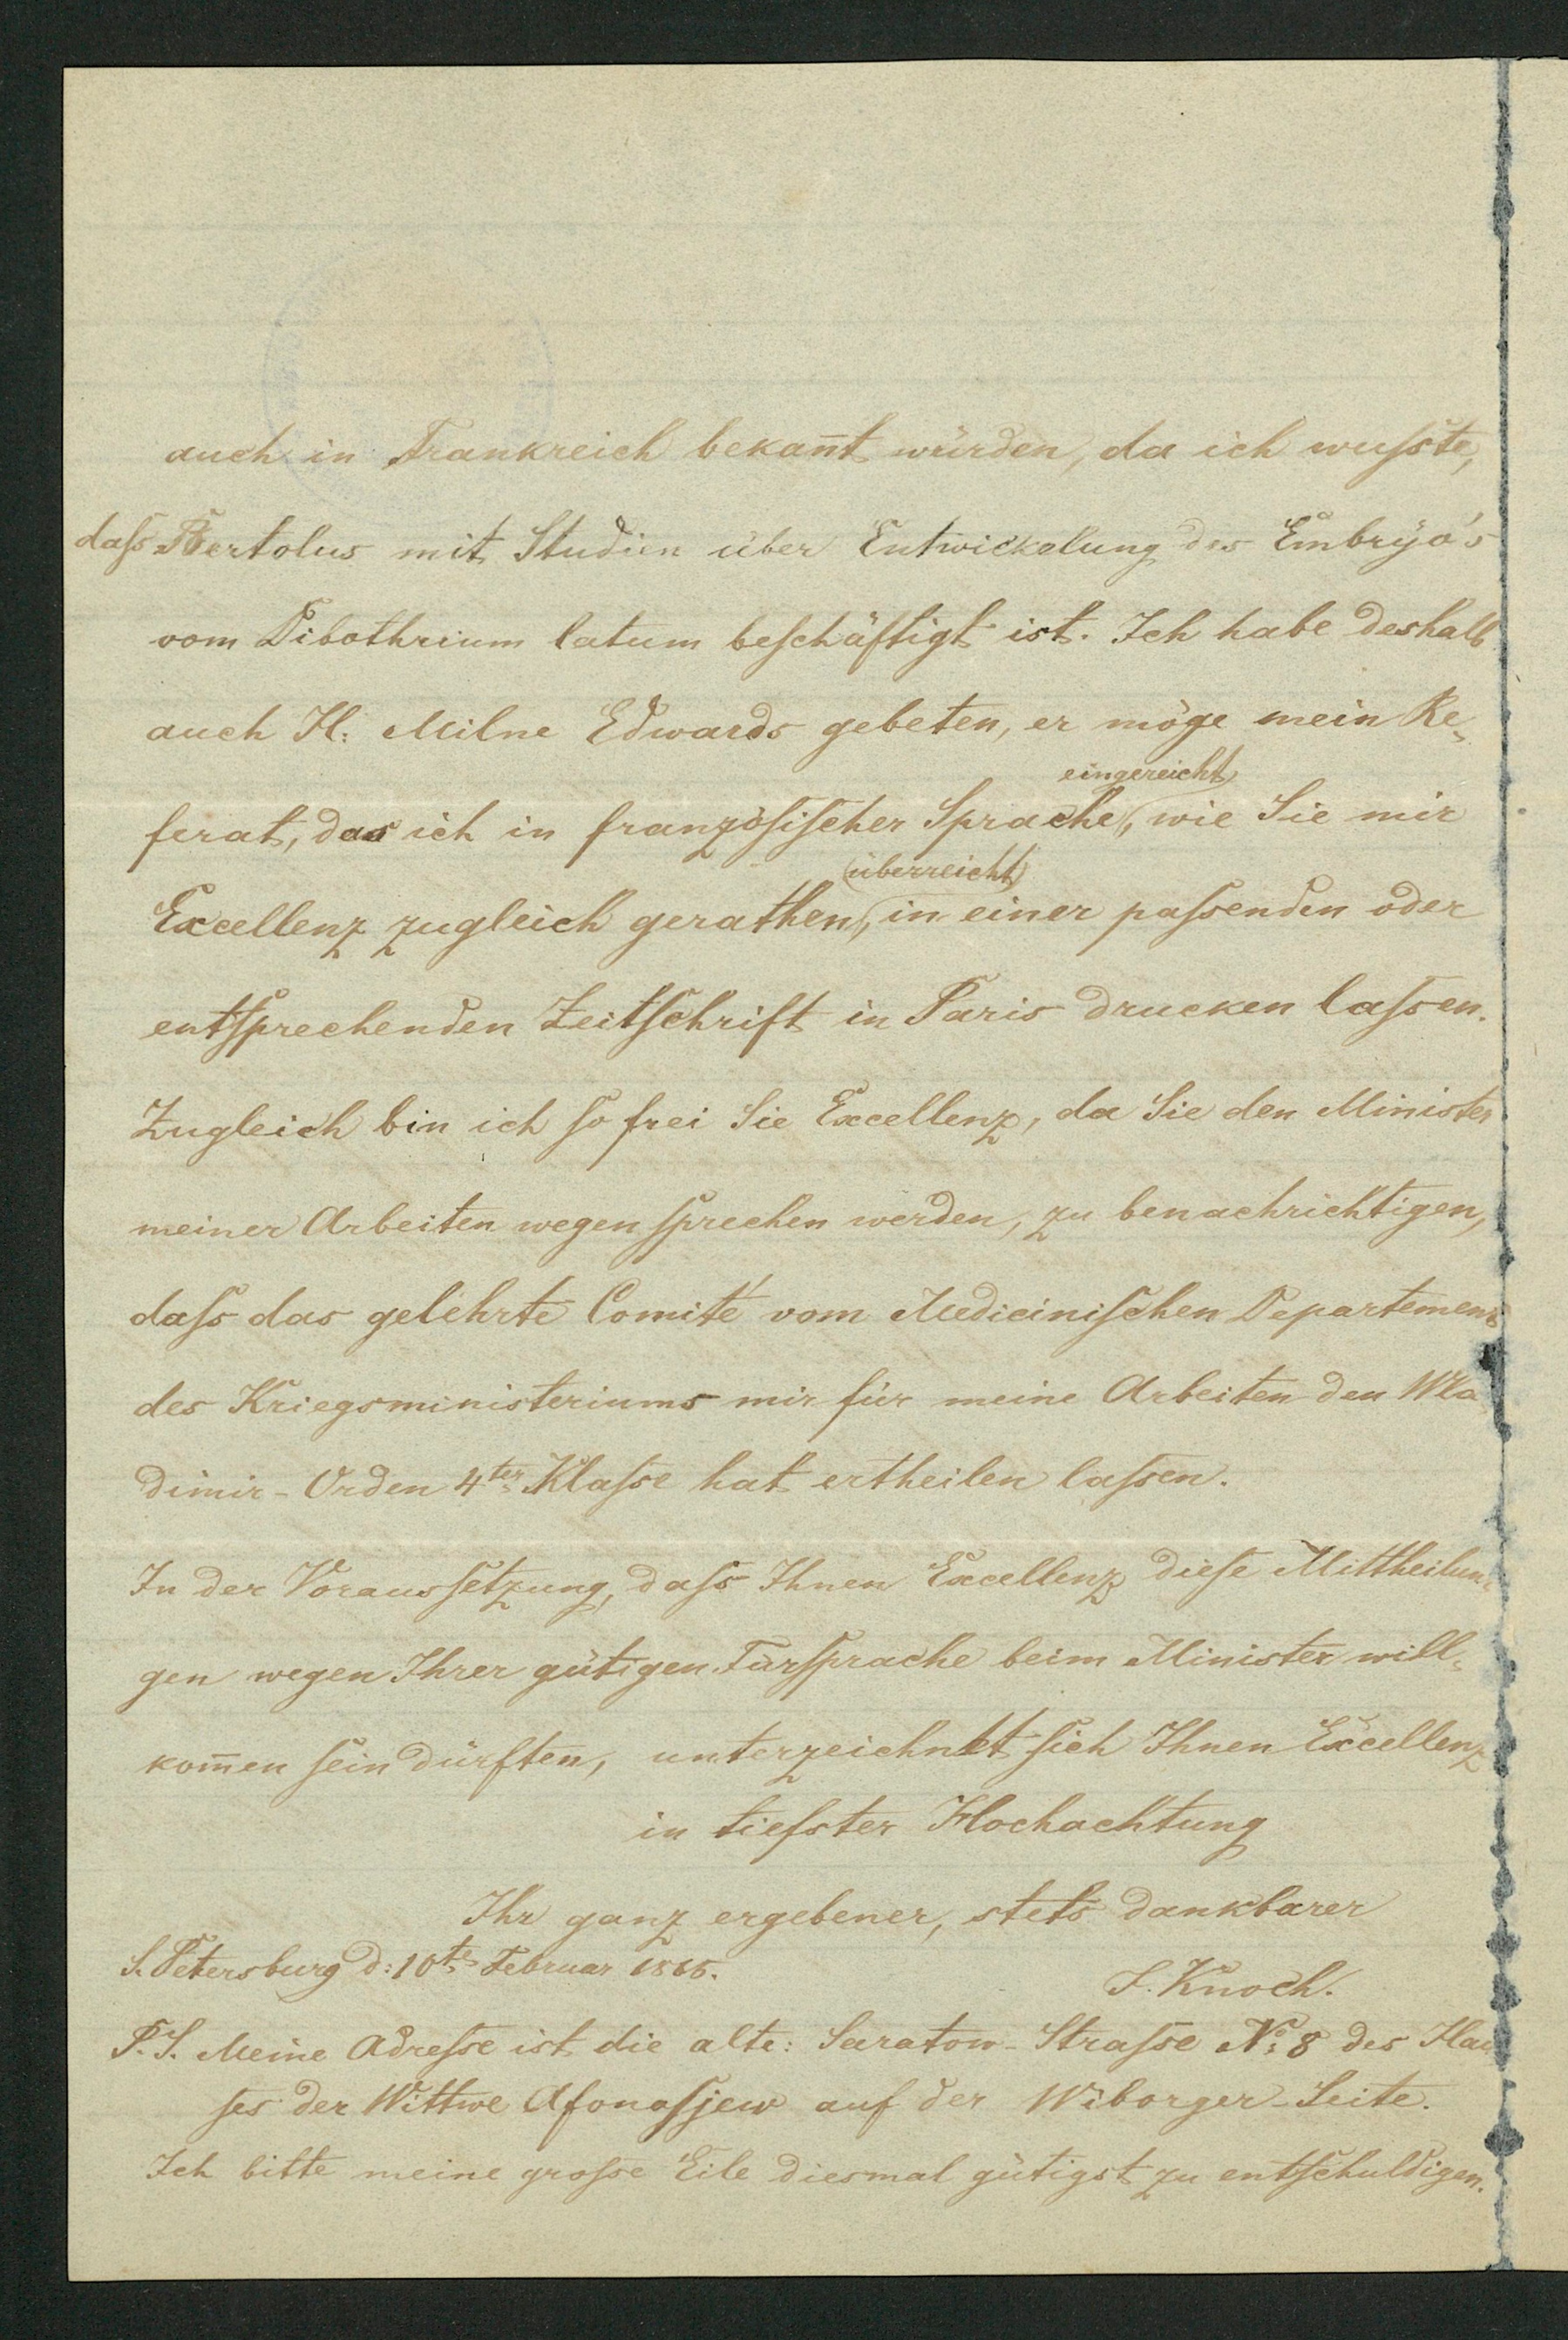 auch in Frankreich bekan̄t würden, da ich wuſste,
daſs Bertolus mit Studien über Entwickelung des Embryo's
vom Dibothrium latum beſchäftigt ist. Ich habe deshalb
auch H: Milne Edwards gebeten, er möge mein Re-
eingereicht
ferat, das ich in franzöſiſcher Sprache, wie Sie mir
überreicht
Excellenz zugleich gerathen, in einer paſsenden oder
entſprechenden Zeitſchrift in Paris drucken laſsen.
Zugleich bin ich ſo frei Sie Excellenz, da Sie den Minister
meiner Arbeiten wegen ſprechen werden, zu benachrichtigen,
daſs das gelehrte Comité vom Mediciniſchen Departement
des Kriegsministeriums mir für meine Arbeiten den Wla
dimir-Orden 4ter Klaſse hat ertheilen laſsen.
In der Vorausſetzung, daſs Ihnen Excellenz dieſe Mittheilun-
gen wegen Ihrer gütigen Fürſprache beim Minister will-
kom̄en ſein dürften, unterzeichnet ſich Ihnen Excellenz
in tiefster Hochachtung
Ihr ganz ergebener, stets dankbarer
S. Petersburg d: 10te Februar 1865.
J. Knoch.
P. S. Meine Adreſse ist die alte: Saratow-Straſse №: 8 des Hau
ſes der Wittwe Afonaſjew auf der Wiborger-Seite.
Ich bitte meine groſse Eile diesmal gütigst zu entſchuldigen.